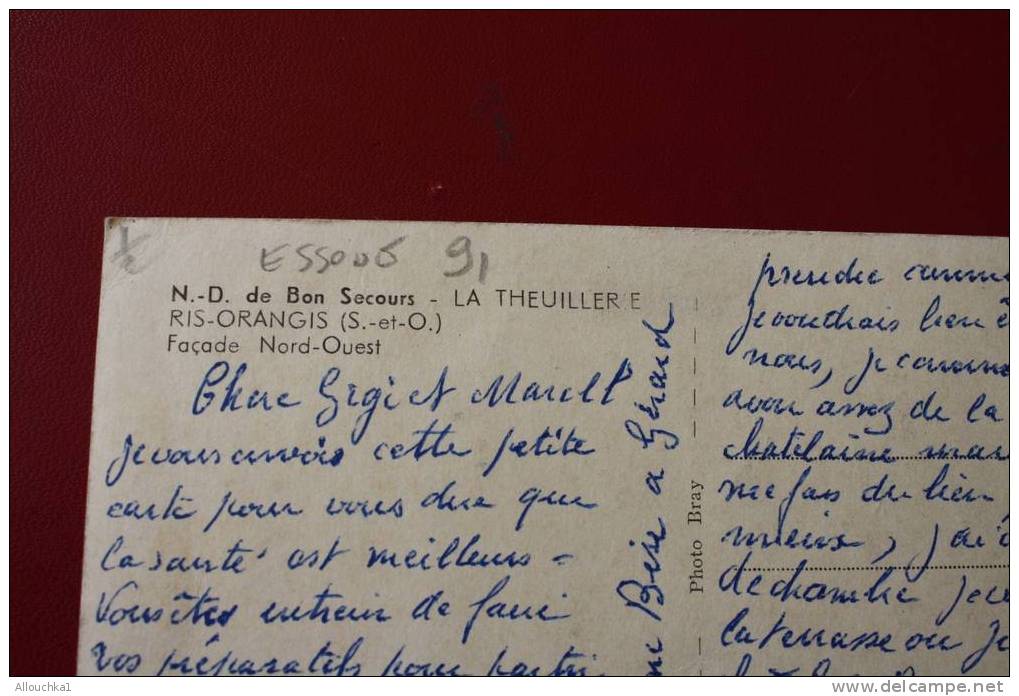 ESSONE 91
N.-D. de Bon Secours - LA THEUILLERIE
RIS-ORANGIS (S.-et-O.)
Façade Nord-Ouest
Chere Gigi et Marcell
je vous envois cette petite
carte pour vous dire que
la santé est meilleurs =
Vous êtes entrein de faire
vos préparatifs pour partir
Bise a Gérard
Photo Bray
prendre
je voudrais bien
nous, je
avons assez de la
chatelaine
me fais du bien
mieux, j'ai
de chambre je
la terrasse ou je
Allouchka1
www.delcampe.net